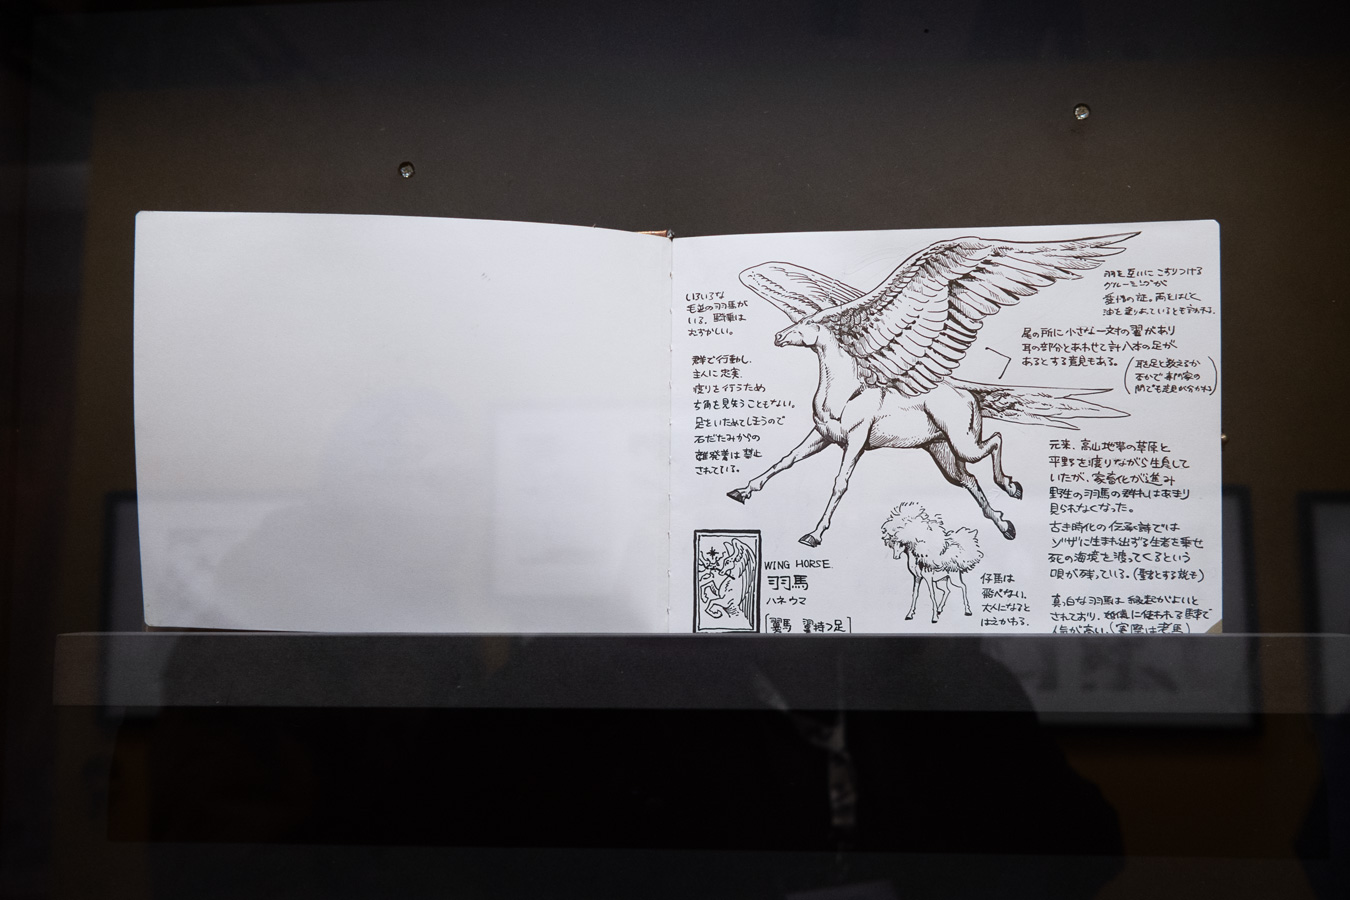 いろいろな
毛並の羽馬が
いる。騎乗は
むずかしい。
群で行動し、
主人に忠実。
渡りを行うため
方角を見失うこともない。
足をいためてしまうので
石だたみからの
離発着は禁止
されている。
WING HORSE.
羽馬
ハネウマ
[翼馬 翼持つ足]
羽を互いにこすりつける
グルーミングが
愛情の証。雨をはじく
油を塗りあっているとも言われる。
尾の所に小さな一対の翼があり
耳の部分とあわせて計八本の足が
あるとする意見もある。
(耳を足と数えるか
否かで専門家の
間でも意見が分かれる)
元来、高山地帯の草原と
平野を渡りながら生息して
いたが、家畜化が進み
野生の羽馬の群れはあまり
見られなくなった。
古き時代の伝承詩では
生まれ出ずる生者を乗せ
死の海境を渡ってくるという
唄が残っている。(聖者とする説も)
真っ白な羽馬は縁起がよいと
されており、婚儀に使われる馬車で
人気が高い。(実際は老馬)
仔馬は
飛べない。
大人になると
はえかわる。